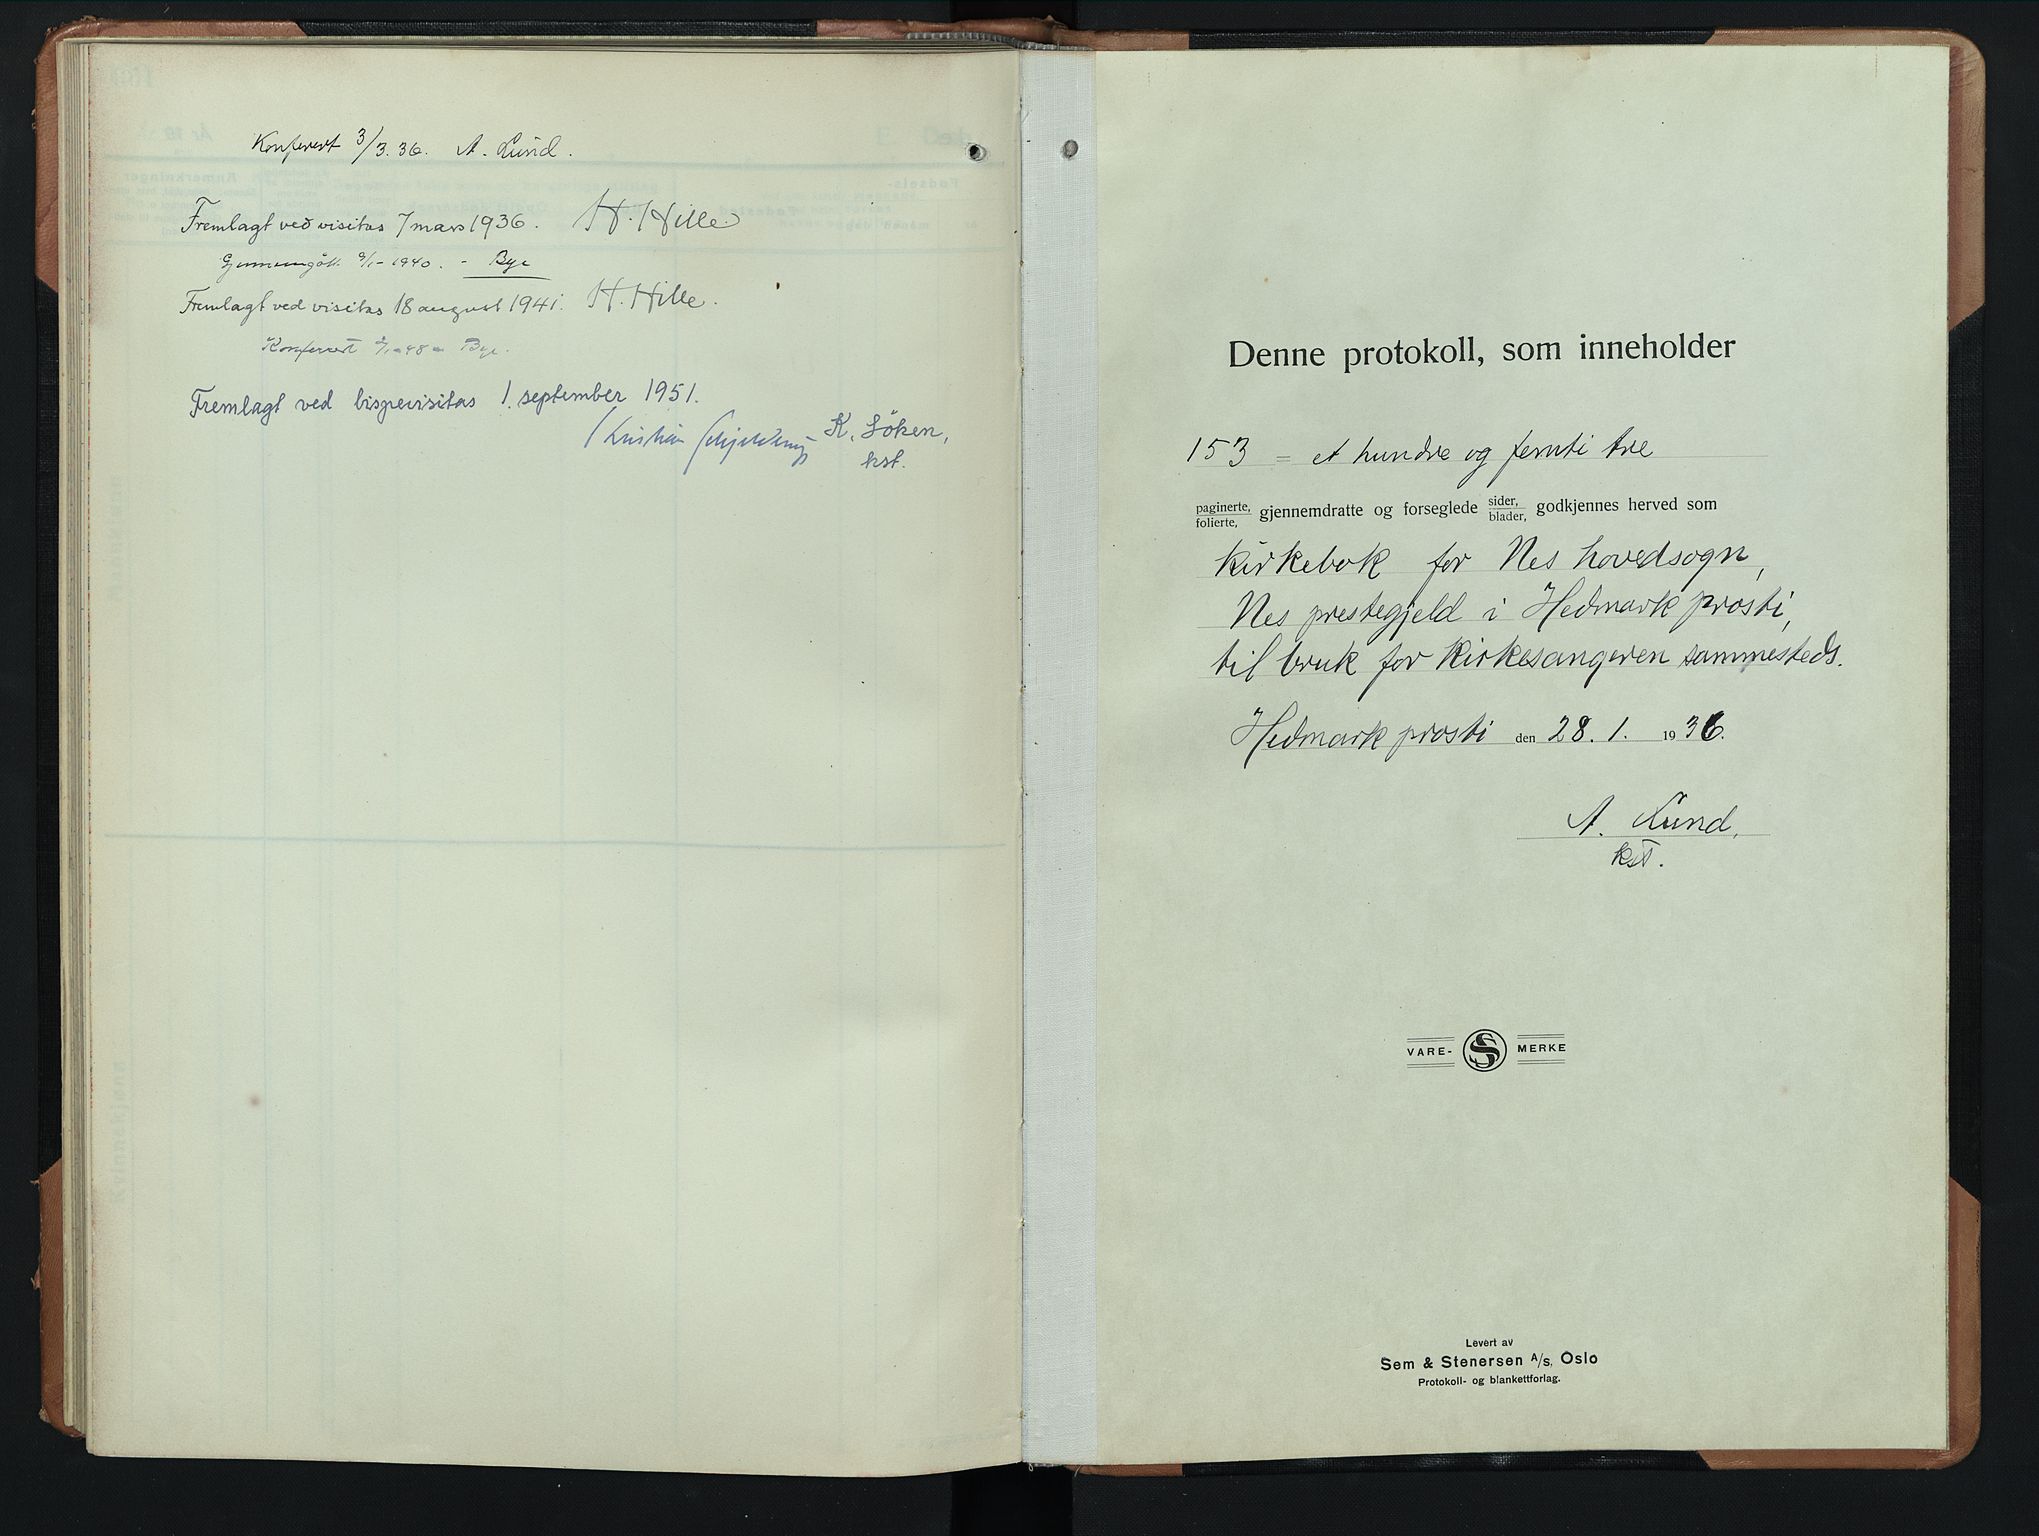 Konferert 3/3.36. A. Lund.
Fremlagt ved visitas 7 mars 1936. H. Hille
Gjennemgått 9/1-1940. - Bye
Fremlagt ved visitas 18 august 1941. H. Hille.
Konferert /1-48 - Bye.
Fremlagt ved bispevisitas 1. september 1951.
Kristian Schjelderup K. Löken,
kst.
Denne protokoll, som inneholder
153 = et hundre og femti tre
paginerte, folierte, gjennemdratte og forseglede sider, blader, godkjennes herved som
kirkebok for Nes hovedsogn,
Nes prestegjeld i Hedmark prosti,
til bruk for kirkesangeren sammesteds.
Hedmark prosti den 28. 1. 1936.
A. Lund,
kst.
VARE- S MERKE
Levert av
Sem & Stenersen A/s, Oslo
Protokoll- og blankettforlag.